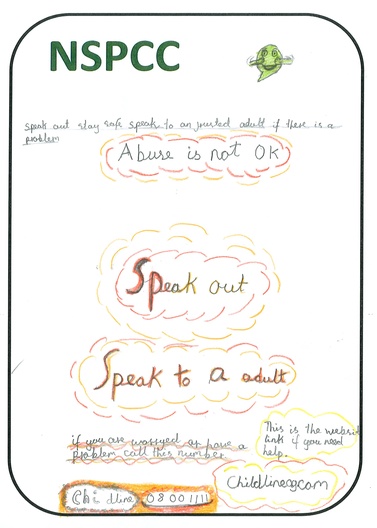 NSPCC
speak out stay safe speak to an trusted adult if there is a
problem
Abuse is not OK
Speak out
Speak to a adult
This is the website
link if you need
help.
if you are worryed or have a
problem call this number
Childline@com
Chi dline 08001111